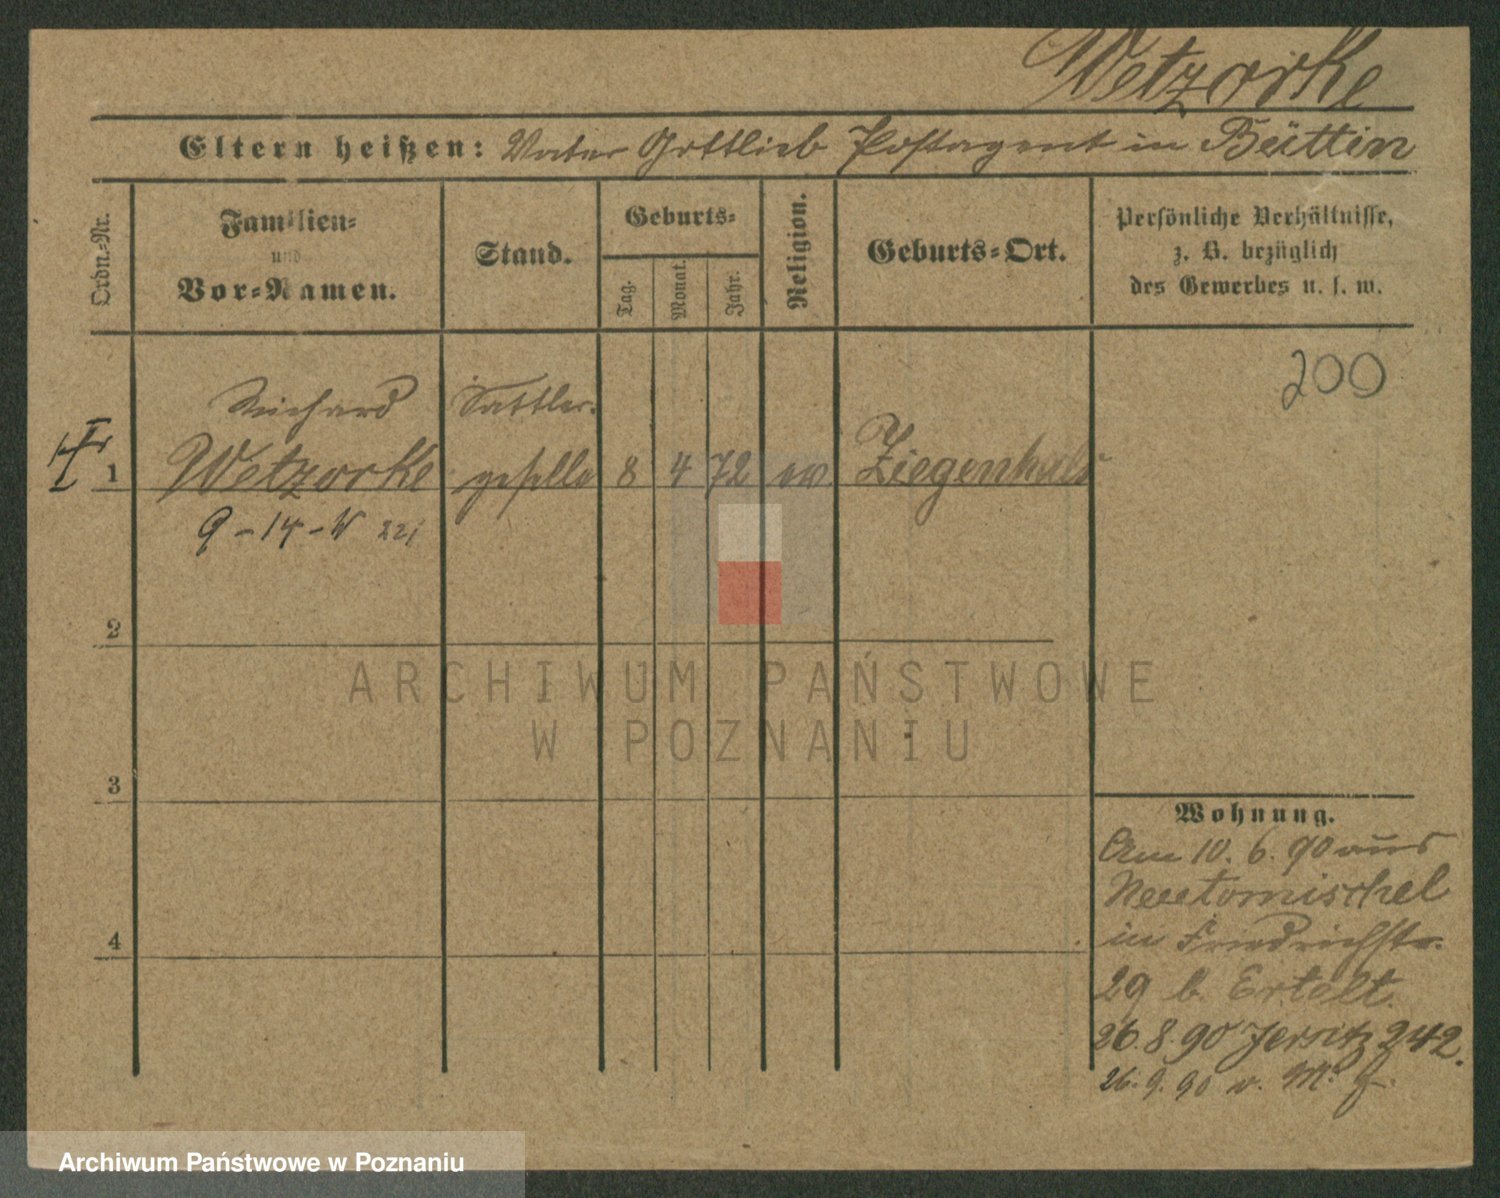 Wetzorke
Eltern heißen: Vater Gottlieb Postagent in Büttin
Ordn.-Nr.
Familien-
und
Vor-Namen.
Stand.
Geburts-
Tag.
Monat.
Jahr.
Religion.
Geburts-Ort.
Persönliche Verhältnisse,
z. B. bezüglich
des Gewerbes u. s. w.
200
Richard Sattler-
1 Wetzorke geselle 8 4 72 ev Ziegenhals
9-14-W 221
2
ARCHIWUM PAŃSTWOWE
W POZNANIU
3
Wohnung.
Am 10. 6. 90 aus
Neutomischel
in Friedrichstr.
4
29 b. Ertelt.
26. 8. 90 Jersitz 242.
26. 9. 90 n.
Archiwum Państwowe w Poznaniu